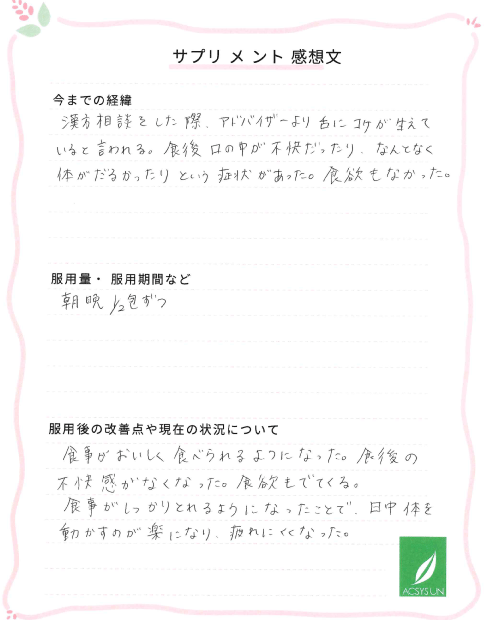 サプリメント感想文
今までの経緯
漢方相談をした際、アドバイザーより舌にコケが生えて
いると言われる。食後口の中が不快だったり、なんとなく
体がだるかったりという症状があった。食欲もなかった。
服用量・服用期間など
朝晩 1/2包ずつ
服用後の改善点や現在の状況について
食事がおいしく食べられるようになった。食後の
不快感がなくなった。食欲もでてくる。
食事がしっかりとれるようになったことで、日中体を
動かすのが楽になり、疲れにくくなった。
ACSYSUN